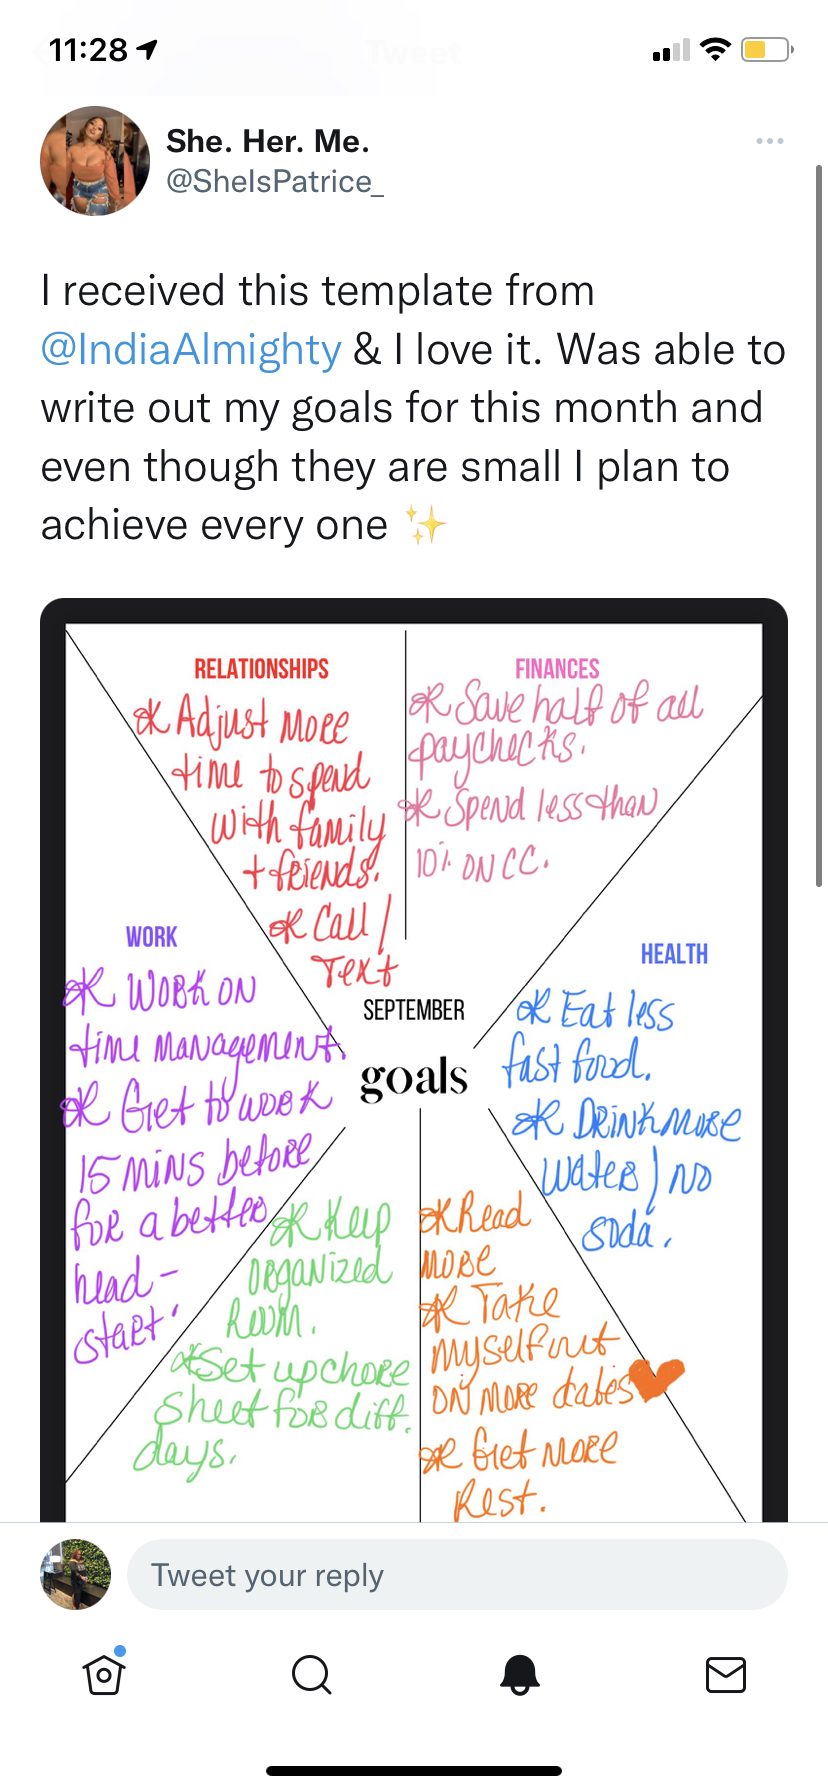 11:28
Tweet
She. Her. Me.
@SheIsPatrice_
I received this template from
@IndiaAlmighty & I love it. Was able to
write out my goals for this month and
even though they are small I plan to
achieve every one ✨
RELATIONSHIPS
* Adjust more
time to spend
with family
+ friends.
* Call /
Text
FINANCES
* Save half of all
paychecks.
* Spend less than
10% on CC.
WORK
* Work on
time management.
* Get to work
15 mins before
for a better
head-
start.
SEPTEMBER
goals
HEALTH
* Eat less
fast food.
* Drink more
water / no
soda.
* Keep
organized
room.
* Set up chore
sheet for diff.
days.
* Read
more
* Take
myself out
on more dates
* Get more
rest.
Tweet your reply